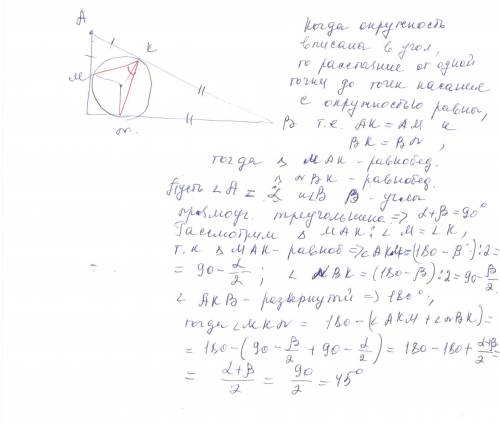 A
K
M
N
B
Когда окружность
вписана в угол,
то расстояние от одной
точки до точек касания
с окружностью равны,
т.е. AK = AM и
BK = BN,
тогда △ MAK - равнобед.
△ NBK - равнобед.
Пусть ∠A = α и ∠B β - углы
прямоуг. треугольника => α+β = 90°
Рассмотрим △ MAK: ∠M = ∠K,
т.к △ MAK - равноб => ∠AKM = (180 - β°):2 =
= 90 - α/2 ; ∠NBK = (180 - β):2 = 90 - β/2
∠ AKB - развернутый => 180°,
тогда ∠MKN = 180 - (∠AKM + ∠NBK) =
= 180 - (90 - β/2 + 90 - α/2) = 180 - 180 + (α+β)/2 =
= (α+β)/2 = 90/2 = 45°